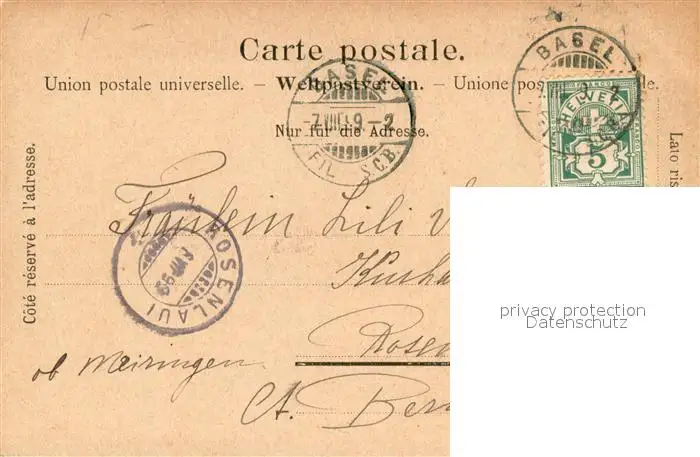 Carte postale.
Union postale universelle. — Weltpostverein. — Unione postale
Nur für die Adresse.
Côté réservé à l'adresse.
Lato ris
BASEL
FIL S.C.B.
BASEL
HELVETIA
5
ROSENLAUI
Fräulein Lili
Kurha
Rosen
ob Meiringen
Ct. Bern
privacy protection
Datenschutz